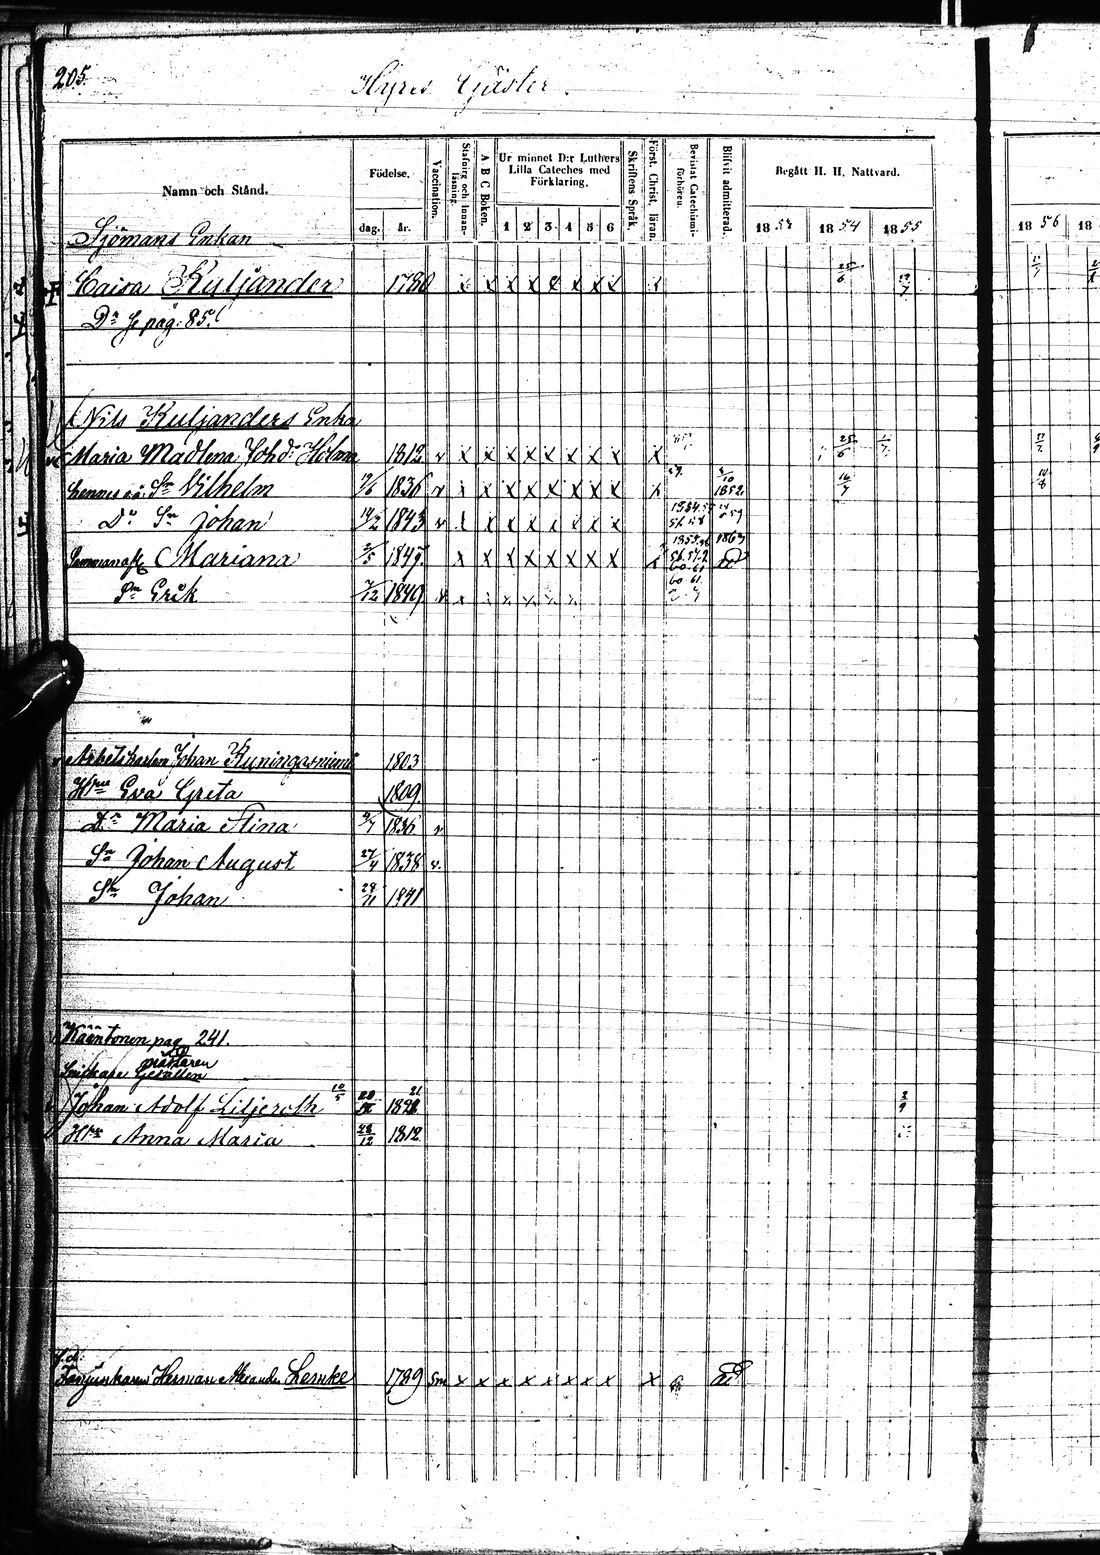 205.
Hyres Gäster
Namn och Stånd.
Födelse.
dag. år.
Vaccination.
Stafning och Innan-läsning.
A B C Boken.
Ur minnet D:r Luthers Lilla Cateches med Förklaring.
1 2 3 4 5 6
Skriftens Språk.
Först. Christ. läran.
Bevistat Catechismi-förhören.
Blifvit admitterad.
Begått H. H. Nattvard.
1853 1854 1855
1856 18
Sjömans Enkan
Caisa Kuljander 1780 x x x x x x x x x 25/6
Dr Se pag: 85.
Nils Kuljanders Enka
Maria Madlena Johd: Holm 1812 v x x x x x x x x x 25/6
Sn Vilhelm 1836 v x x x x x x x x x 1852
Dr Sn Johan 14/2 1843 v x x x x x x x x
Mariana 2/5 1847 x x x x x x x x x 1863
Sn Erik 7/12 1849 v x x x x x x
60-61
Arbetskarlen Johan Kuningasniemi 1803
Hru Eva Greta 1809
Dr Maria Stina 1836 v
Sn Johan August 27/4 1838 v.
Sn Johan 28/11 1841
Kääntonen pag 241.
mästaren
Snickare Gesällen
Johan Adolf Liljeroth 10/5 20/IX 1821
Hru Anna Maria 28/12 1812
F.d.
Fanjunkaren Herman Alexander Lemke 1789 Sm x x x x x x x x x